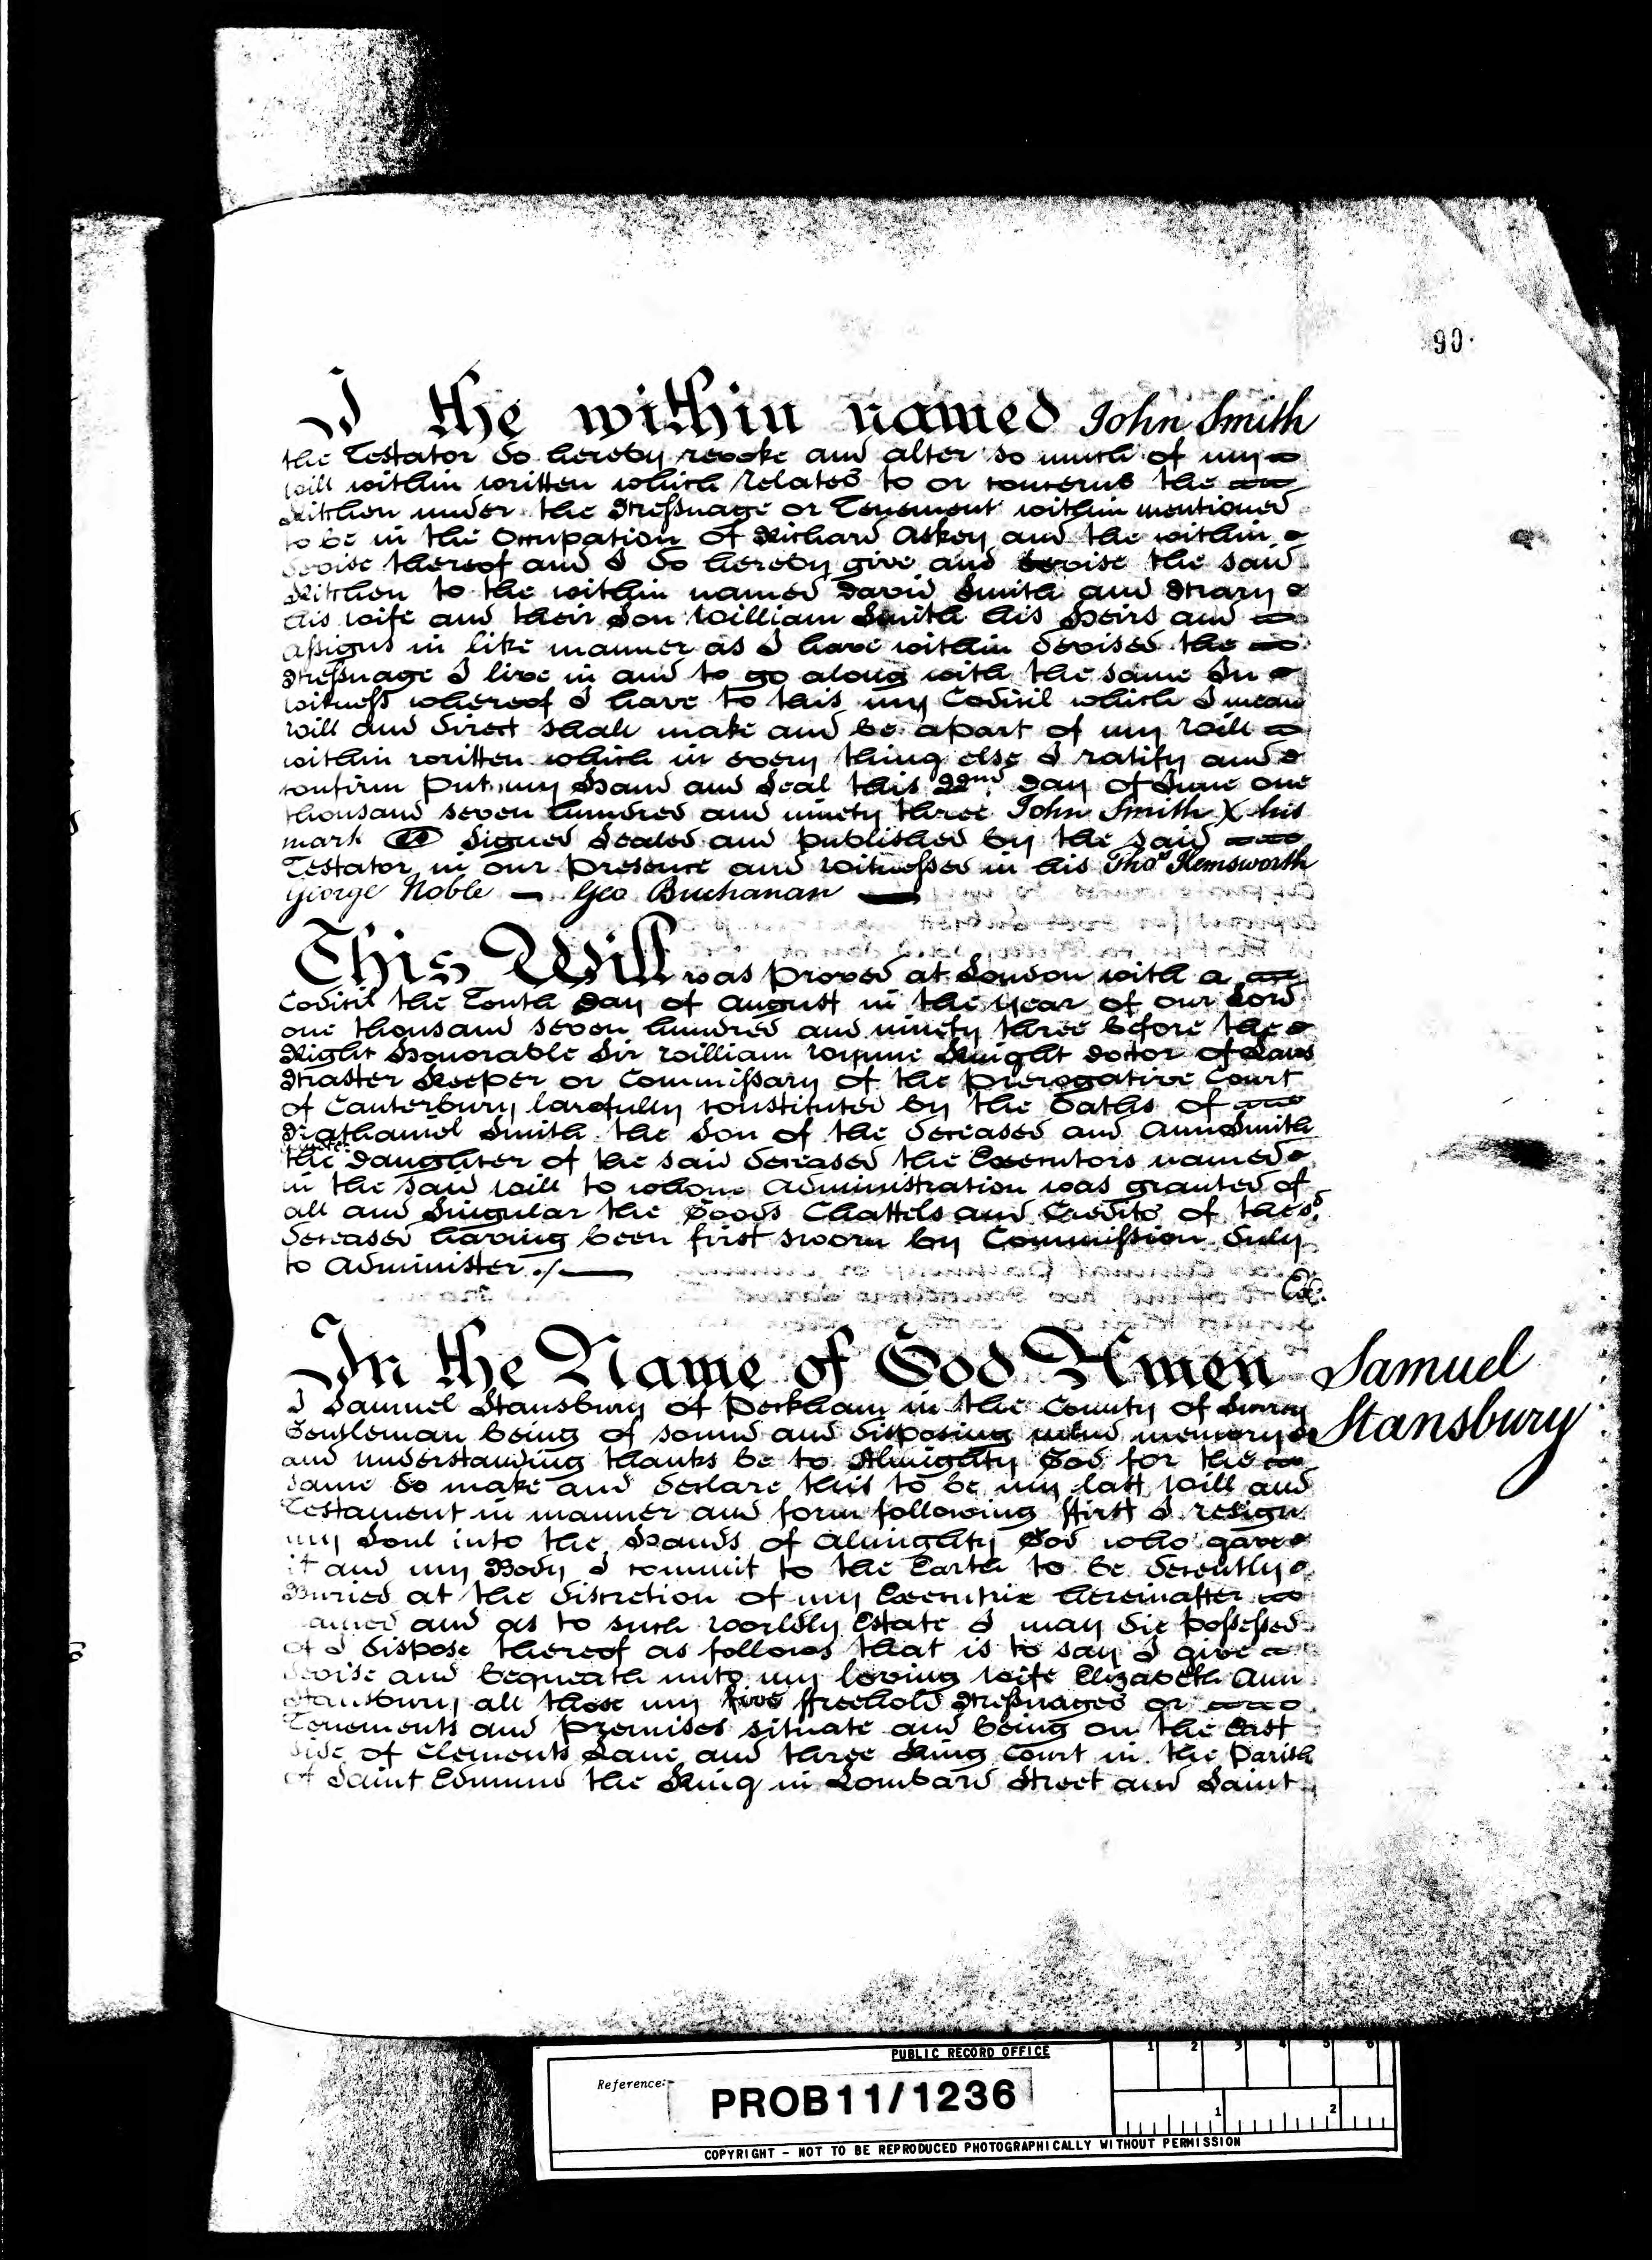 90.
I the within named John Smith
the Testator do hereby revoke and alter so much of my
will within written which relates to or concerns the
Kitchen under the Messuage or Tenement within mentioned
to be in the Occupation of Richard Askey and the within
devise thereof and I do hereby give and devise the said
Kitchen to the within named David Smith and Mary
his wife and their Son William Smith his Heirs and
Assigns in like manner as I have within devised the
Messuage I live in and to go along with the same In
witness whereof I have to this my Codicil which I mean
will and direct shall make and be apart of my Will
within written which in every thing else I ratify and
confirm put my Hand and Seal this 22nd. Day of June one
thousand seven hundred and ninety three John Smith X his
mark Signed Sealed and published by the said
Testator in our presence and witnessed in his Thos Hemsworth
George Noble — Geo Buchanan —
This Will was proved at London with a
Codicil the Tenth Day of August in the year of our Lord
one thousand seven hundred and ninety three before the
Right Honorable Sir William Wynne Knight Doctor of Laws
Master Keeper or Commissary of the prerogative Court
of Canterbury lawfully constituted by the Oaths of
Nathaniel Smith the Son of the deceased and Ann Smith
the Daughter of the said deceased the Executors named
in the said will to whom Administration was granted of
all and Singular the Goods Chattels and Credits of the sd.
deceased having been first sworn by Commission duly
to Administer ./.
In the Name of God Amen
Samuel
Stansbury
I Samuel Stansbury of Peckham in the County of Surry
Gentleman being of sound and disposing mind memory &
and understanding thanks be to Almighty God for the
same do make and declare this to be my last will and
Testament in manner and form following ffirst I resign
my Soul into the Hands of Almighty God who gave
it and my Body I commit to the Earth to be decently
Buried at the discretion of my Executrix hereinafter
named and as to such worldly Estate I may die possessed
of I dispose thereof as follows that is to say I give
devise and bequeath unto my loving wife Elizabeth Ann
Stansbury all those my five ffreehold Messuages or
Tenements and premises situate and being on the East
side of Clements Lane and three King Court in the Parish
of Saint Edmund the King in Lombard Street and Saint
PUBLIC RECORD OFFICE
Reference:-
PROB 11/1236
1 2 3 4 5 6
1 2
COPYRIGHT - NOT TO BE REPRODUCED PHOTOGRAPHICALLY WITHOUT PERMISSION